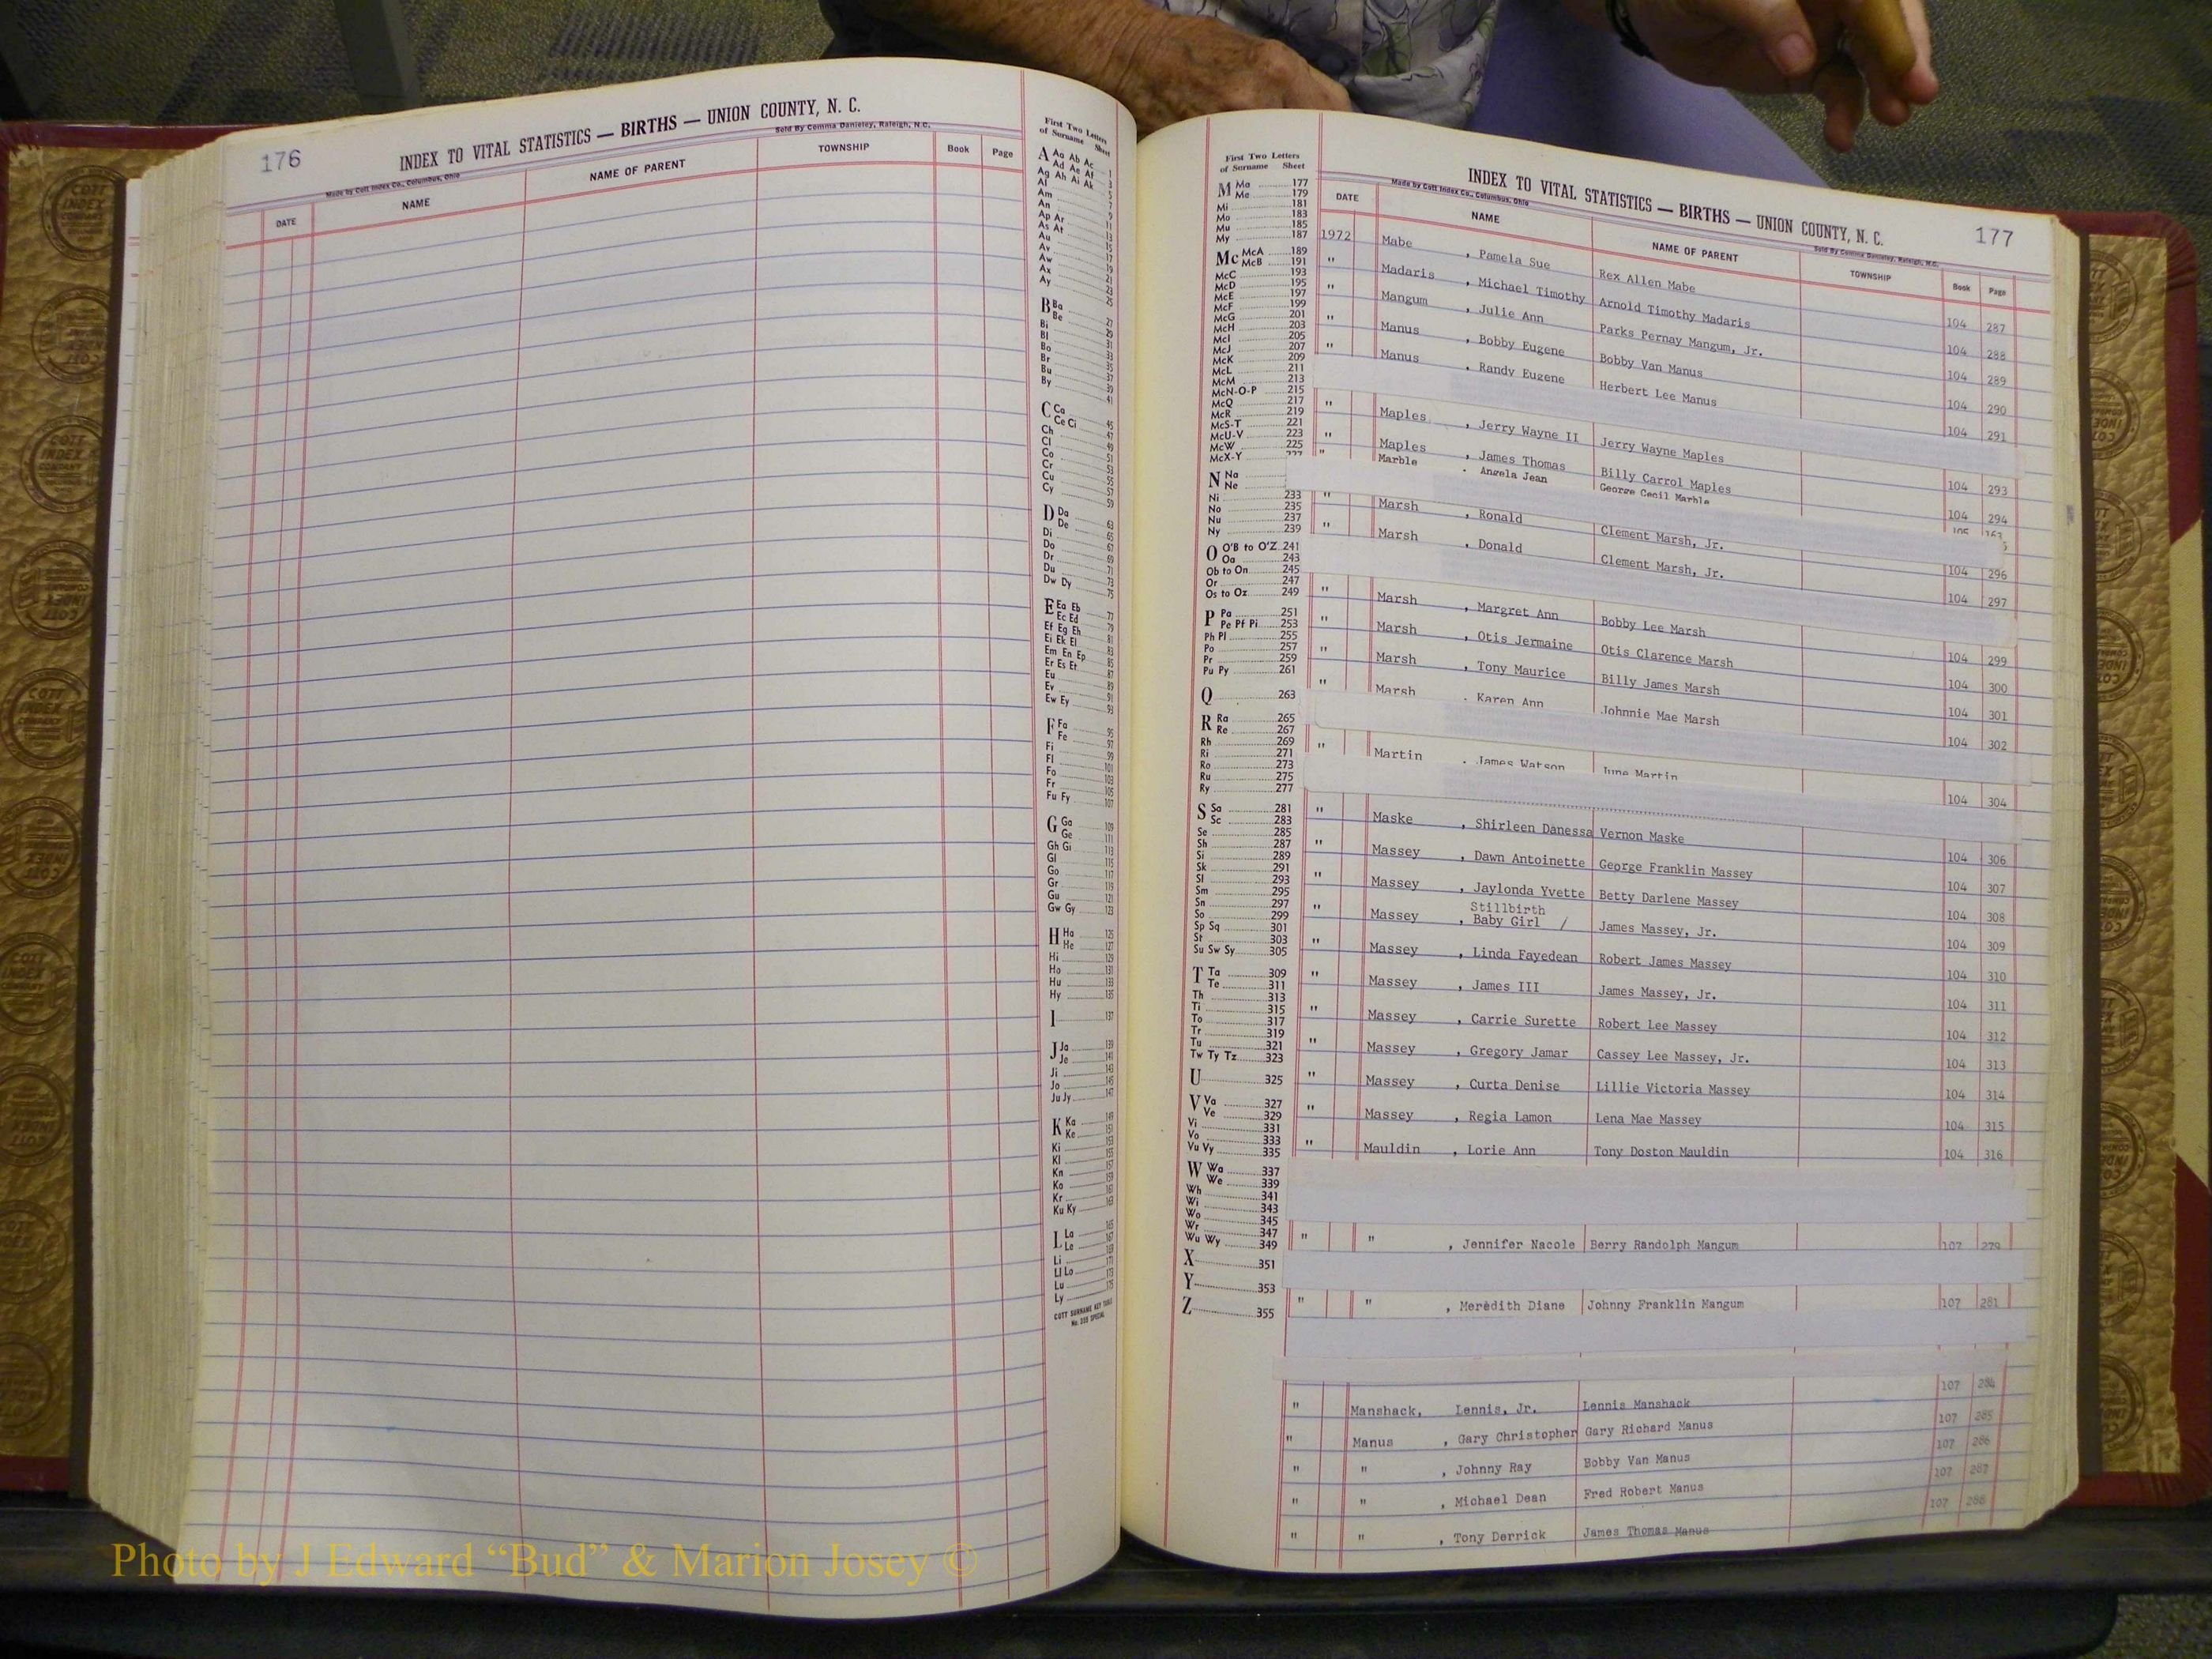 176
INDEX TO VITAL STATISTICS — BIRTHS — UNION COUNTY, N. C.
Made by Cott Index Co., Columbus, Ohio
Sold By Comma Danieley, Raleigh, N.C.
DATE NAME NAME OF PARENT TOWNSHIP Book Page
First Two Letters
of Surname Sheet
A Aa Ab Ac 1
Ad Ae Af 3
Ag Ah Ai Ak 5
Al 7
Am 9
An 11
Ap Ar 13
As At 15
Au 17
Av 19
Aw 21
Ax 23
Ay 25
B Ba 27
Be 29
Bi 31
Bl 33
Bo 35
Br 37
Bu 39
By 41
C Ca 45
Ce Ci 47
Ch 49
Cl 51
Co 53
Cr 55
Cu 57
Cy 59
D Da 63
De 65
Di 67
Do 69
Dr 71
Du 73
Dw Dy 75
E Ea Eb 77
Ec Ed 79
Ef Eg Eh 81
Ei Ek El 83
Em En Ep 85
Er Es Et 87
Eu 89
Ev 91
Ew Ey 93
F Fa 95
Fe 97
Fi 99
Fl 101
Fo 103
Fr 105
Fu Fy 107
G Ga 109
Ge 111
Gh Gi 113
Gl 115
Go 117
Gr 119
Gu 121
Gw Gy 123
H Ha 125
He 127
Hi 129
Ho 131
Hu 133
Hy 135
I 137
J Ja 139
Je 141
Ji 143
Jo 145
Ju Jy 147
K Ka 149
Ke 151
Ki 153
Kl 155
Kn 157
Ko 159
Kr 161
Ku Ky 163
L La 165
Le 167
Li 169
Ll Lo 171
Lu 173
Ly 175
COTT SURNAME KEY TABLE
No. 350 SPECIAL
First Two Letters
of Surname Sheet
M Ma 177
Me 179
Mi 181
Mo 183
Mu 185
My 187
Mc McA 189
McB 191
McC 193
McD 195
McE 197
McF 199
McG 201
McH 203
McI 205
McJ 207
McK 209
McL 211
McM 213
McN-O-P 215
McQ 217
McR 219
McS-T 221
McU-V 223
McW 225
McX-Y 227
N Na
Ne
Ni 233
No 235
Nu 237
Ny 239
O O'B to O'Z 241
Oa 243
Ob to On 245
Or 247
Os to Oz 249
P Pa 251
Pe Pf Pi 253
Ph Pl 255
Po 257
Pr 259
Pu Py 261
Q 263
R Ra 265
Re 267
Rh 269
Ri 271
Ro 273
Ru 275
Ry 277
S Sa 281
Sc 283
Se 285
Sh 287
Si 289
Sk 291
Sl 293
Sm 295
Sn 297
So 299
Sp Sq 301
St 303
Su Sw Sy 305
T Ta 309
Te 311
Th 313
Ti 315
To 317
Tr 319
Tu 321
Tw Ty Tz 323
U 325
V Va 327
Ve 329
Vi 331
Vo 333
Vu Vy 335
W Wa 337
We 339
Wh 341
Wi 343
Wo 345
Wr 347
Wu Wy 349
X 351
Y 353
Z 355
INDEX TO VITAL STATISTICS — BIRTHS — UNION COUNTY, N. C.
177
Made by Cott Index Co., Columbus, Ohio
Sold By Comma Danieley, Raleigh, N.C.
DATE NAME NAME OF PARENT TOWNSHIP Book Page
1972 Mabe , Pamela Sue Rex Allen Mabe 104 287
" Madaris , Michael Timothy Arnold Timothy Madaris 104 288
" Mangum , Julie Ann Parks Pernay Mangum, Jr. 104 289
" Manus , Bobby Eugene Bobby Van Manus 104 290
" Manus , Randy Eugene Herbert Lee Manus 104 291
" Maples , Jerry Wayne II Jerry Wayne Maples 104 293
" Maples , James Thomas Billy Carrol Maples 104 294
" Marble , Angela Jean George Cecil Marble 105 163
" Marsh , Ronald Clement Marsh, Jr. 104 296
" Marsh , Donald Clement Marsh, Jr. 104 297
" Marsh , Margret Ann Bobby Lee Marsh 104 299
" Marsh , Otis Jermaine Otis Clarence Marsh 104 300
" Marsh , Tony Maurice Billy James Marsh 104 301
" Marsh , Karen Ann Johnnie Mae Marsh 104 302
" Martin , James Watson June Martin 104 304
" Maske , Shirleen Danessa Vernon Maske 104 306
" Massey , Dawn Antoinette George Franklin Massey 104 307
" Massey , Jaylonda Yvette Betty Darlene Massey 104 308
Stillbirth
" Massey , Baby Girl / James Massey, Jr. 104 309
" Massey , Linda Fayedean Robert James Massey 104 310
" Massey , James III James Massey, Jr. 104 311
" Massey , Carrie Surette Robert Lee Massey 104 312
" Massey , Gregory Jamar Cassey Lee Massey, Jr. 104 313
" Massey , Curta Denise Lillie Victoria Massey 104 314
" Massey , Regia Lamon Lena Mae Massey 104 315
" Mauldin , Lorie Ann Tony Doston Mauldin 104 316
" " , Jennifer Nacole Berry Randolph Mangum 107 279
" " , Meredith Diane Johnny Franklin Mangum 107 281
" Manshack, Lennis, Jr. Lennis Manshack 107 284
" Manus , Gary Christopher Gary Richard Manus 107 285
" " , Johnny Ray Bobby Van Manus 107 286
" " , Michael Dean Fred Robert Manus 107 287
" " , Tony Derrick James Thomas Manus 107 288
Photo by J Edward “Bud” & Marion Josey ©